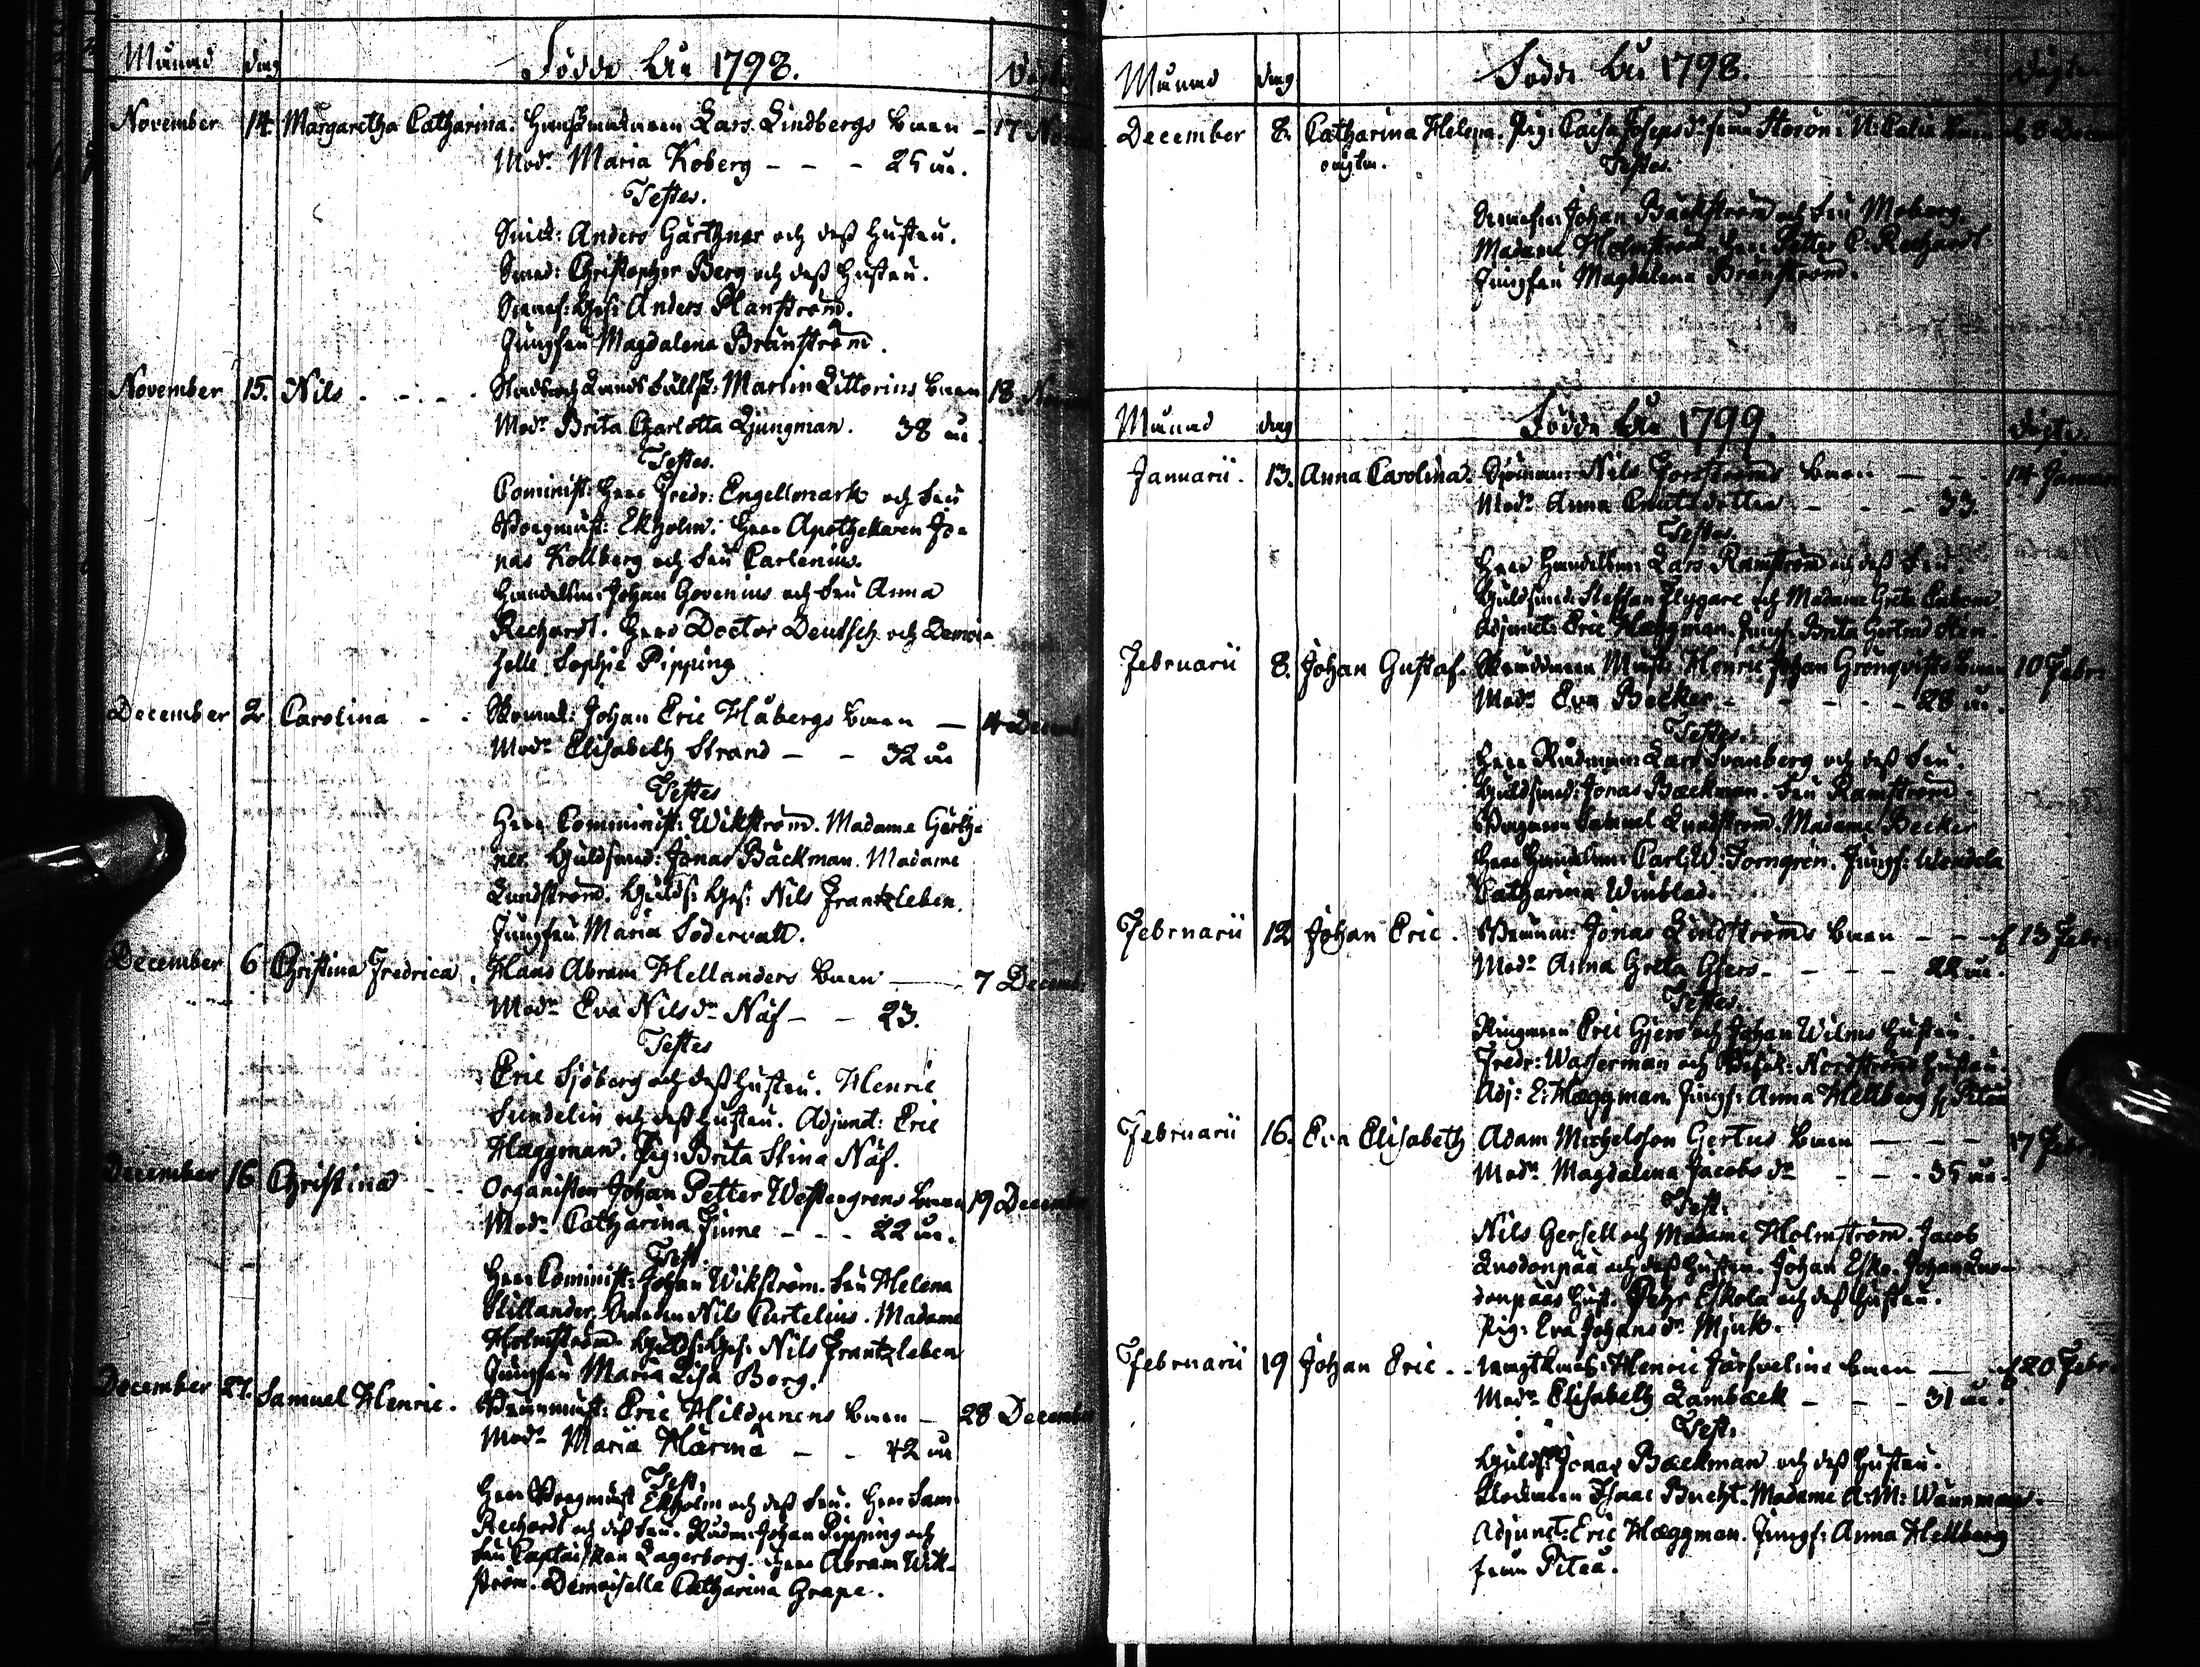 Månad dag Födde Åhr 1798. Döpte
November 14. Margaretha Catharina. Handskmakaren Lars Lindbergs barn - 17 Nov
Modr Maria Koberg - - - 25 år.
Testes.
Snick: Anders Gärthner och dess hustru.
Smed: Christopher Berg och dess hustru.
Ges: Anders Planström.
Jungfru Magdalena Brunström.
November 15. Nils - - - Stads och Lands Martin Littorins barn 18 Nov
Modr Brita Charlotta Ljungman. 38 år.
Testes.
Cominist: Herr Fredr: Engellmark och Fru
Borgmäst: Ekholm. Herr Apothekaren Jo=
nas Kollberg och Fru Carlenius.
Handelsm: Johan Govenius och Fru Anna
Rechardt. Herr Doctor Deutsch och Demoi=
selle Sophie Pipping
December 2. Carolina - - Johan Eric Håbergs barn — 4 Decemb
Modr Elisabeth Strand - - 32 år
Testes
Herr Comminist: Wikström. Madame Gärth=
ner. Guldsmed: Jonas Bäckman. Madame
Lundström. Gulds: Ges: Nils Frantzleben.
Jungfru Maria Södervall.
December 6 Christina Fredrica. Hans Abram Hellanders barn — 7 Decemb.
Modr Eva Nilsdr Näs - - 23.
Testes
Eric Sjöberg och dess hustru. Henric
Sundelin och dess hustru. Adjunct: Eric
Hæggman. Pig: Brita Stina Näs.
December 16 Christina - - Organisten Johan Petter Westergrens barn 19 December
Modr Catharina Finne - - - 22 år.
Test:
Herr Cominist: Johan Wikström. Fru Helena
Stillander. Nils Curtelius. Madame
Holmström. Gulds: Ges: Nils Frantzleben
Jungfru Maria Lisa Borg.
December 27. Samuel Henric. Eric Hildunens barn - 28 December
Modr Maria Härmä - - 42 år
Test:
Herr Borgmäst Ekholm och dess Fru. Herr Sam:
Rechardt och dess Fru. Rådm: Johan Pipping och
Fru Captaiskan Lagerborg. Herr Abram Wik=
ström. Demoiselle Catharina Grape.
Månad dag Födde Åhr 1798. Döpte
December 8. Catharina Helena. Pig: Caisa Josepsdr från Storön i N: Calix barn 8 Decemb
oägta. Testes.
Johan Bäckström och Fru Moberg.
Madame Holmström. Petter C: Rechardt.
Jungfru Magdalena Brunström.
Månad dag Födde Åhr 1799. Döpte.
Januarii. 13. Anna Carolina. Nils Forsströms barn — — 14 Januar
Modr Anna Cnutsdotter - - - 33.
Testes.
Herr Handelsm: Lars Ramström och dess Fru.
Guldsmed: Steffan Flygare och Madame Greta
Adjunct: Eric Hæggman. Jungf: Brita Gertrud
Februarii 8. Johan Gustaf. Henric Johan Grönqvists barn 10 Febr.
Modr Eva Becker - - - - 28 år.
Testes.
Herr Rådmann Lars Svanberg och dess Fru.
Guldsmed: Jonas Bæckman. Fru Ramström
Samuel Lundström. Madame Becker
Herr Handelsm: Carl: W: Forngren. Jungf: Wendela
Catharina Winblad.
Februarii 12 Johan Eric. Jonas Lindströms barn - - 13 Febr
Modr Anna Greta Gjers - - - 22 år.
Testes.
Ringaren Eric Gjers och Johan Wilms hustru.
Fredr: Wasserman och Nordströms hustru.
Adj: E: Hæggman. Jungf: Anna Hellberg Piteå
Februarii 16. Eva Elisabeth Adam Michelsson Gertus barn — — 17 Febr
Modr Magdalena Jacobsdr - - 35 år.
Test:
Nils Gersell och Madame Holmström. Jacob
och dess hustru. Johan Esko. Johan
hust. Pehr Eskola och dess hustru.
Pig: Eva Johansdr Mjuk.
Februarii 19 Johan Eric - - Henric barn — 20 Febr.
Modr Elisabeth Lambäck - - - 31 år.
Test:
Gulds: Jonas Bæckman och dess hustru.
Klockaren Isaac Bucht. Madame A: M: Wänman.
Adjunct: Eric Hæggman. Jungf: Anna Hellberg
från Piteå.